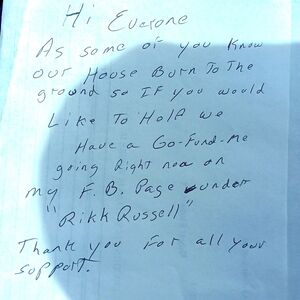 Hi Everone
As some of you know
our House Burn To The
ground so IF you would
Like To Help we
Have a Go-Fund-Me
going Right now on
my F.B. Page under
"Rikk Russell"
Thank you For all your
support.